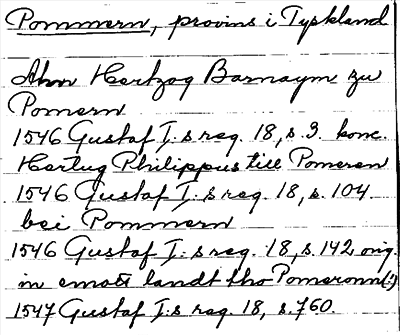 Pommern, provins i Tyskland
Ahn Hertzog Barnaym zu
Pomern
1546 Gustaf I:s reg. 18, s. 3. konc.
Hertug Philippus till Pomeren
1546 Gustaf I:s reg. 18, s. 104.
bei Pommern
1546 Gustaf I:s reg. 18, s. 142 orig.
in emott landt tho Pomeronn(!)
1547 Gustaf I:s reg. 18, s. 760.